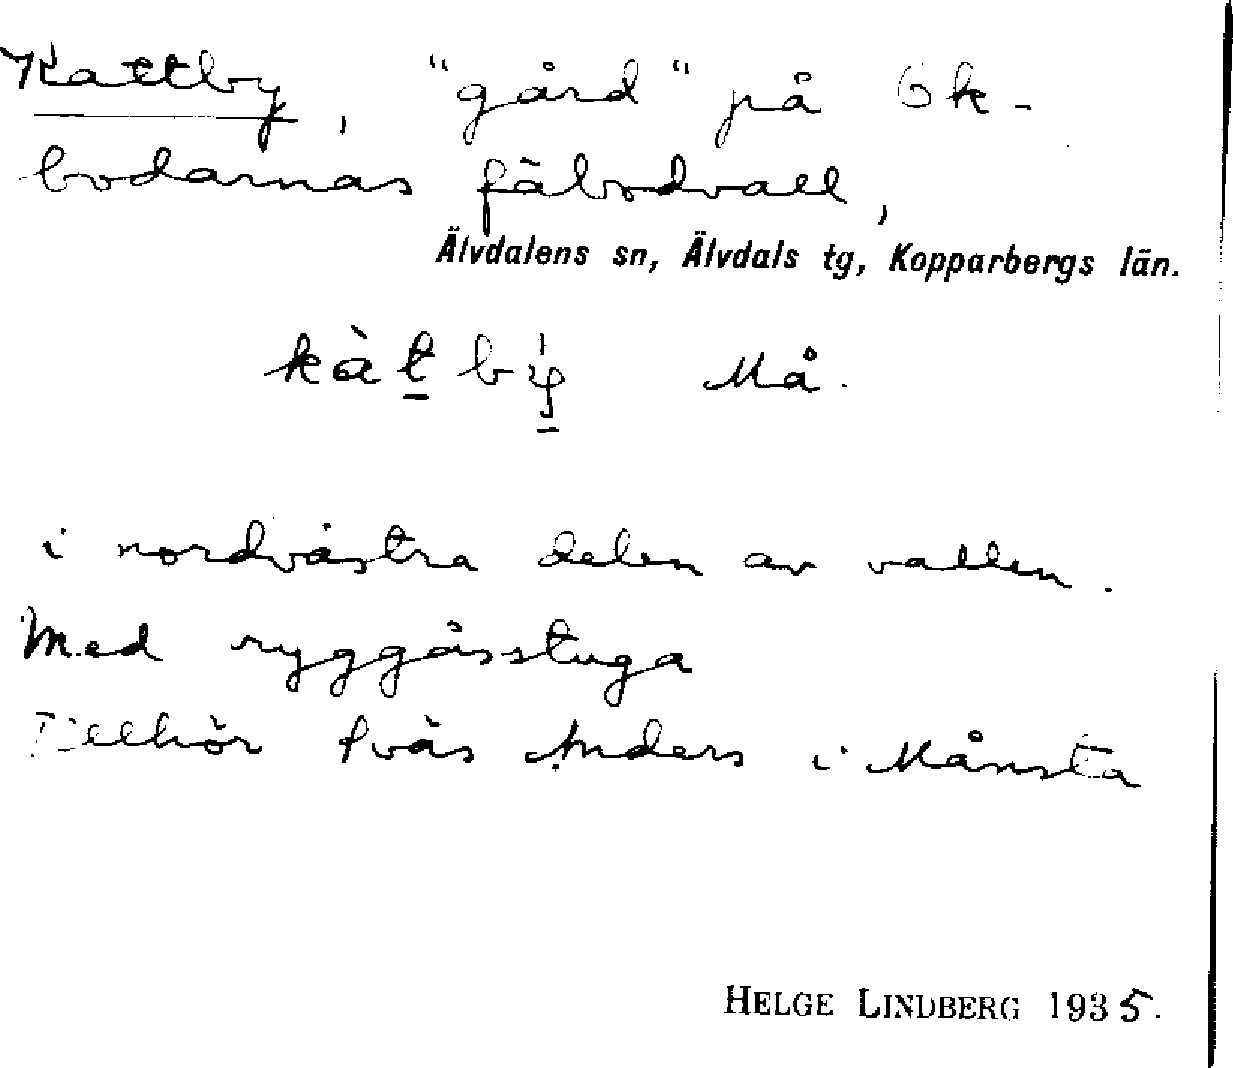 Kattby, "gård" på Ok-
bodarnas fäbodvall,
Älvdalens sn, Älvdals tg, Kopparbergs län.
kàt̲ by̲̍ Må.
i nordvästra delen av vallen.
Med ryggåsstuga
Tillhör Anders i Månsta
HELGE LINDBERG 1935.